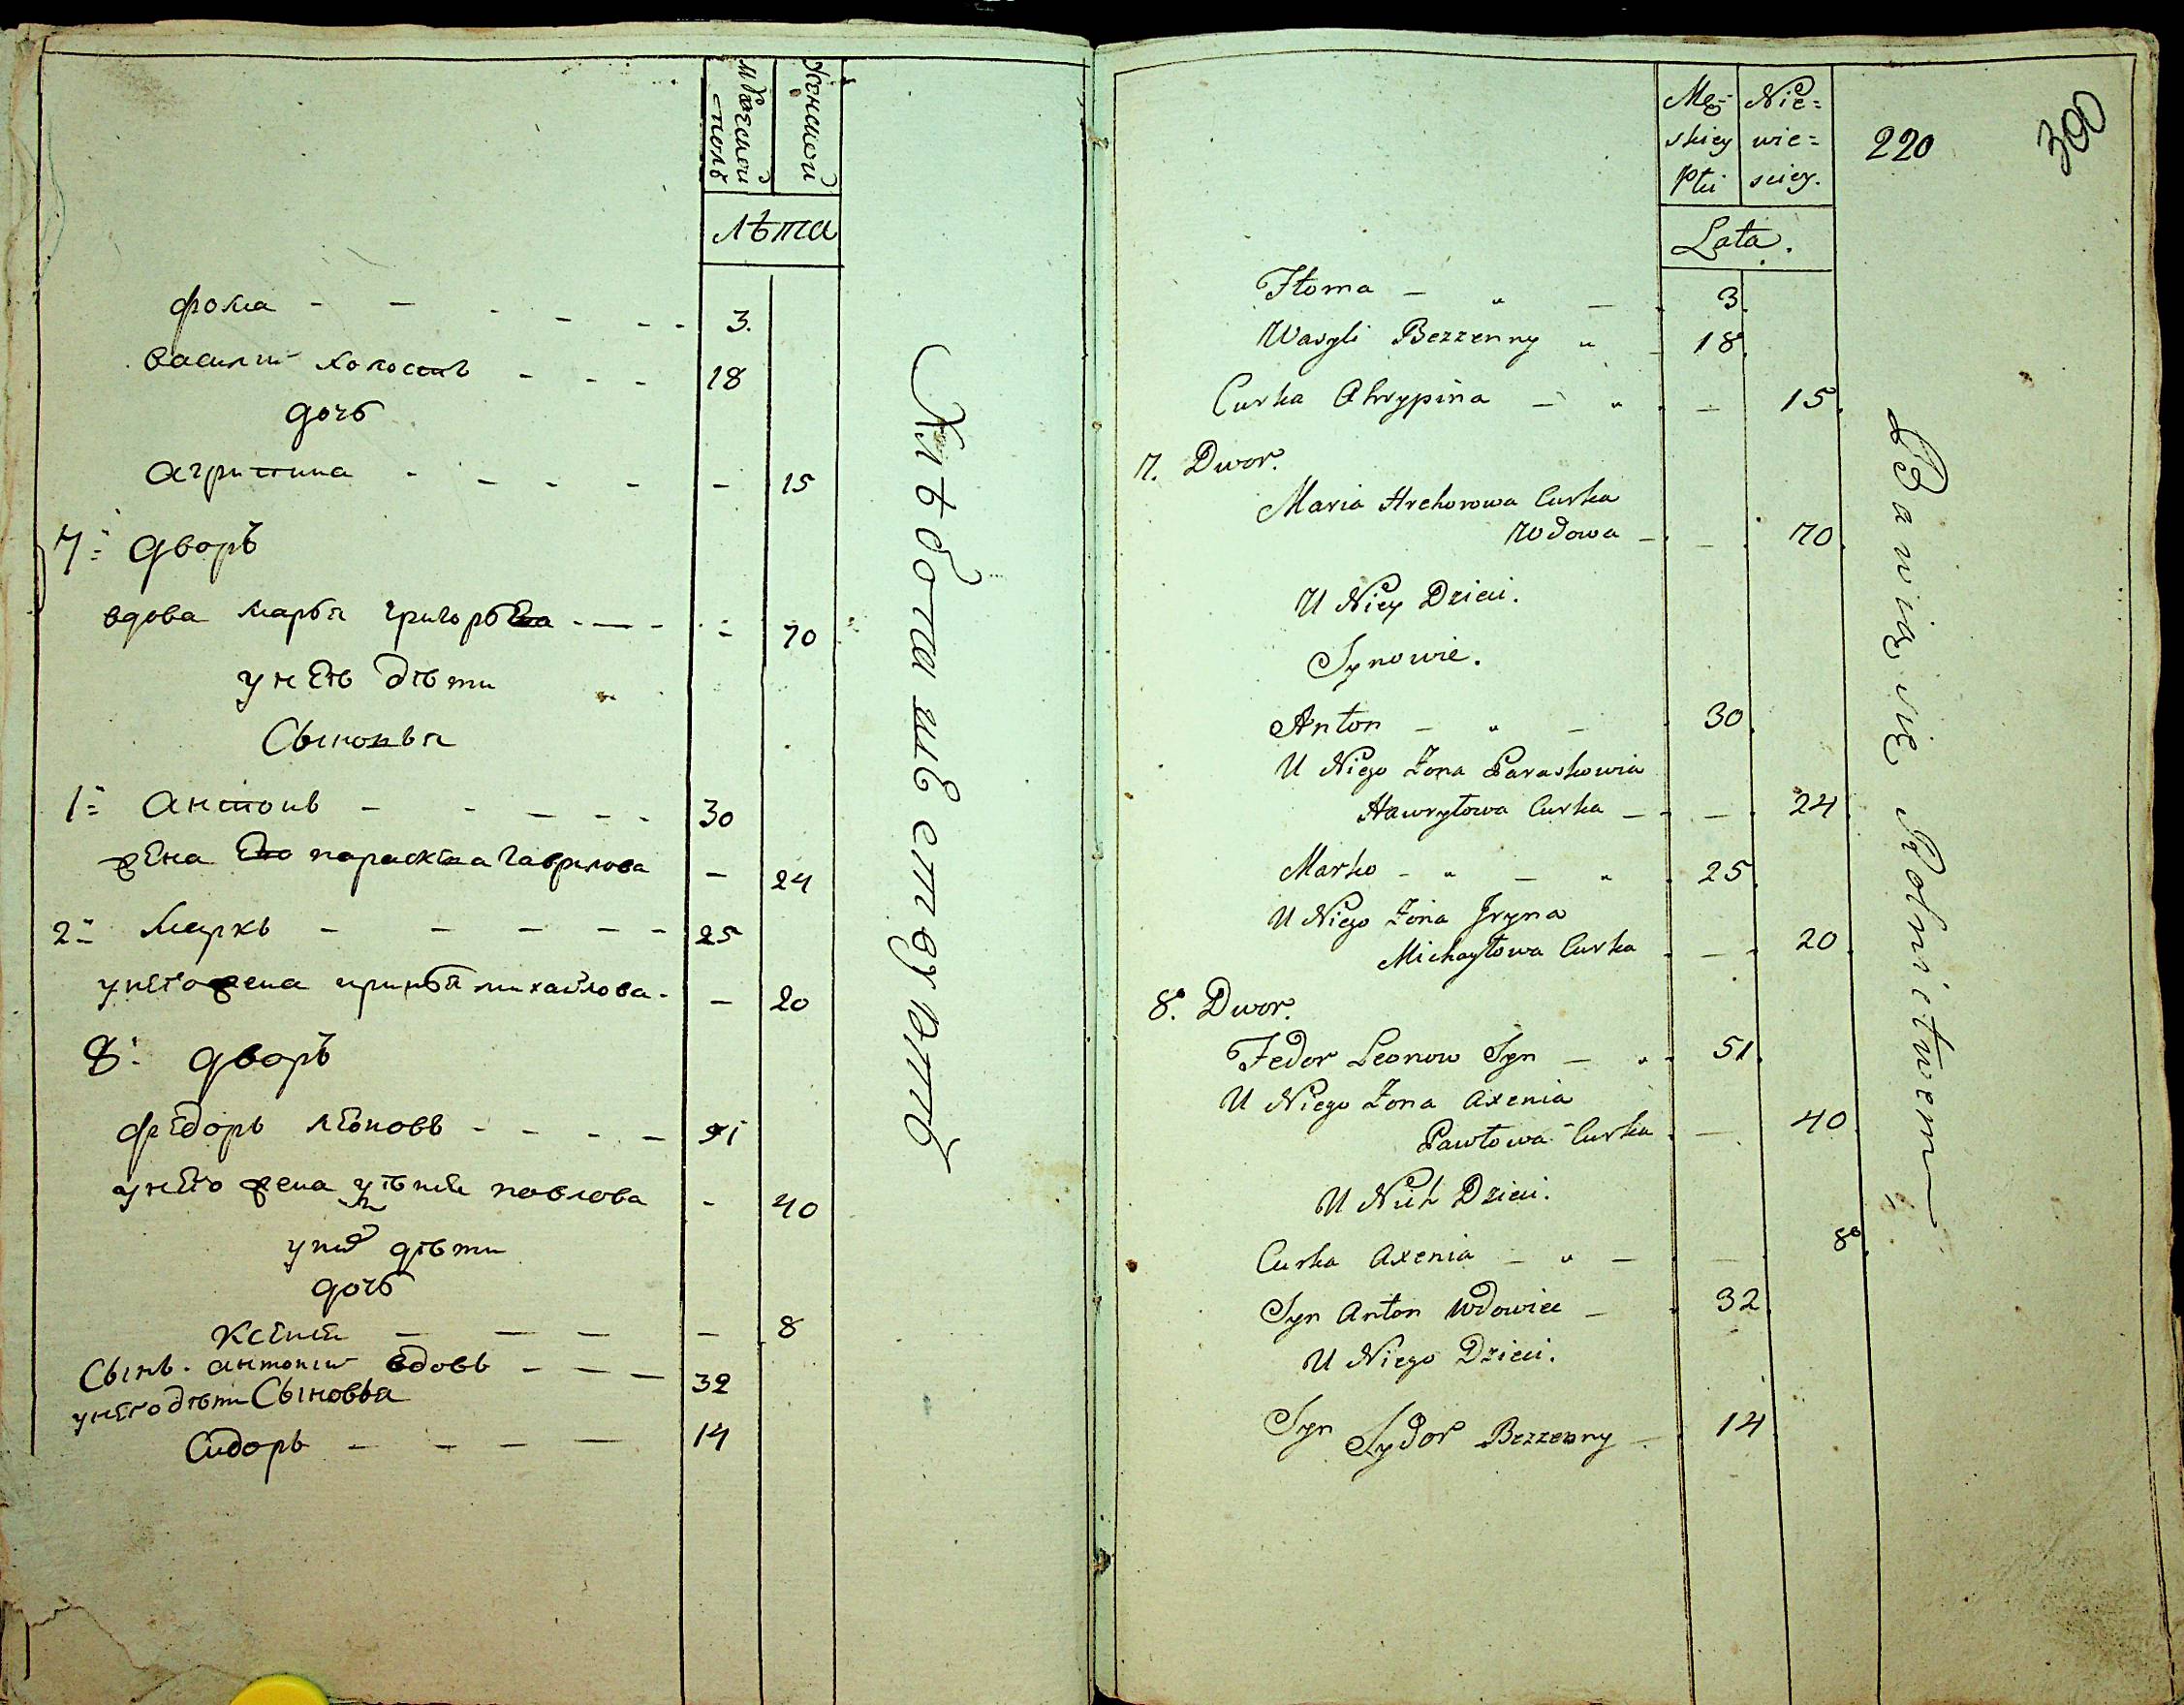 Мужеской
полъ
Женской
лѣта
фома - - - - - - 3.
василий холостъ - - - 18
дочь
агрипина - - - - - 15
7: дворъ
вдова марья григорьева - - - 70
у неѣ дѣти
Сыновья
1: антонъ - - - - - 30
жена его параскева гаврилова - 24
2: маркъ - - - - - 25
у него жена иринья михайлова - - 20
8: дворъ
федоръ леоновъ - - - - 51
у него жена павлова - 40
у них дѣти
дочь
Ксения - - - - 8
Сынъ антоний вдовъ - - - 32
у него дѣти Сыновья
Сидоръ - - - - 14
Хлѣбопашествуютъ
Mę=
skiey
Płci
Nie=
wie=
sciey.
220
300
Lata.
Floma - " - 3.
Wasyli Bezzenny " - 18.
Curka Ahrypina - " - 15.
7. Dwor.
Maria Hrehorowa Curka
Wdowa - - 70.
U Niey Dzieci.
Synowie.
Anton - " - 30.
U Niego Żona Paraskowia
Hawryłowa Curka - - 24.
Marko - " - " 25.
U Niego Żona Jryna
Michayłowa Curka - 20.
8. Dwor.
Fedor Leonow Syn - " 51.
U Niego Żona Axenia
Pawłowa Curka - 40.
U Nich Dzieci.
Curka Axenia - " - - 8.
Syn Anton Wdowiec - 32.
U Niego Dzieci.
Syn Sydor Bezzenny - 14.
Bawią się Rolnictwem